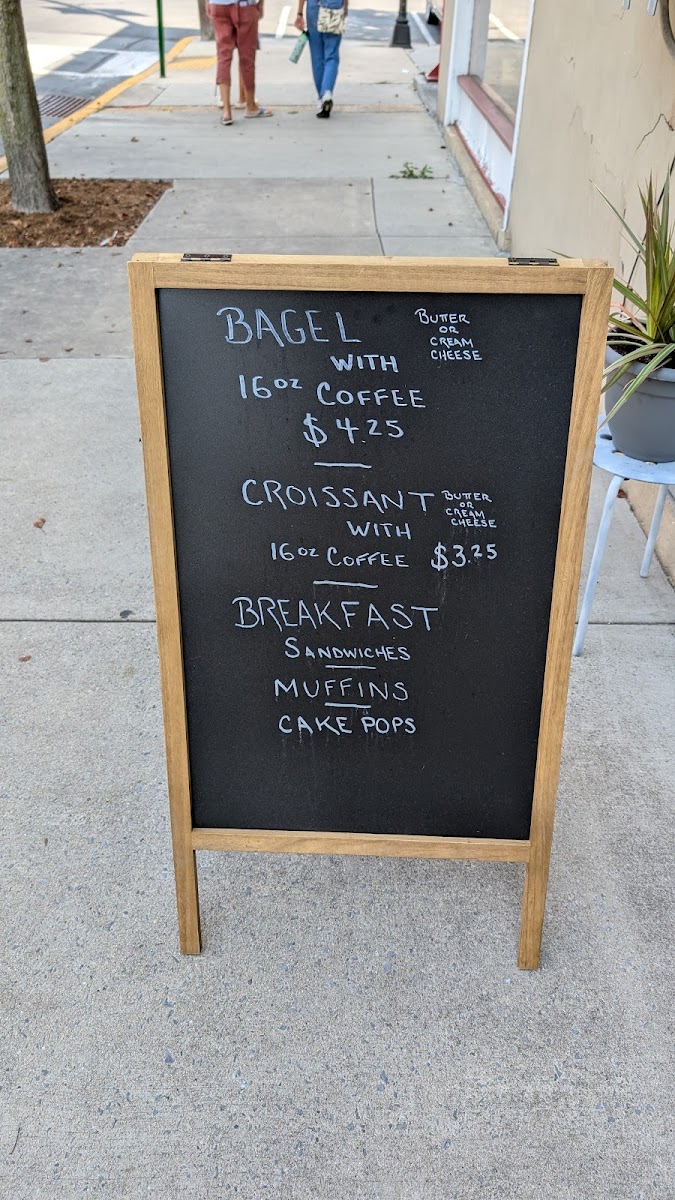 BAGEL
BUTTER
OR
CREAM
CHEESE
WITH
16oz COFFEE
$4.25
CROISSANT
BUTTER
OR
CREAM
CHEESE
WITH
16oz COFFEE $3.25
BREAKFAST
SANDWICHES
MUFFINS
CAKE POPS